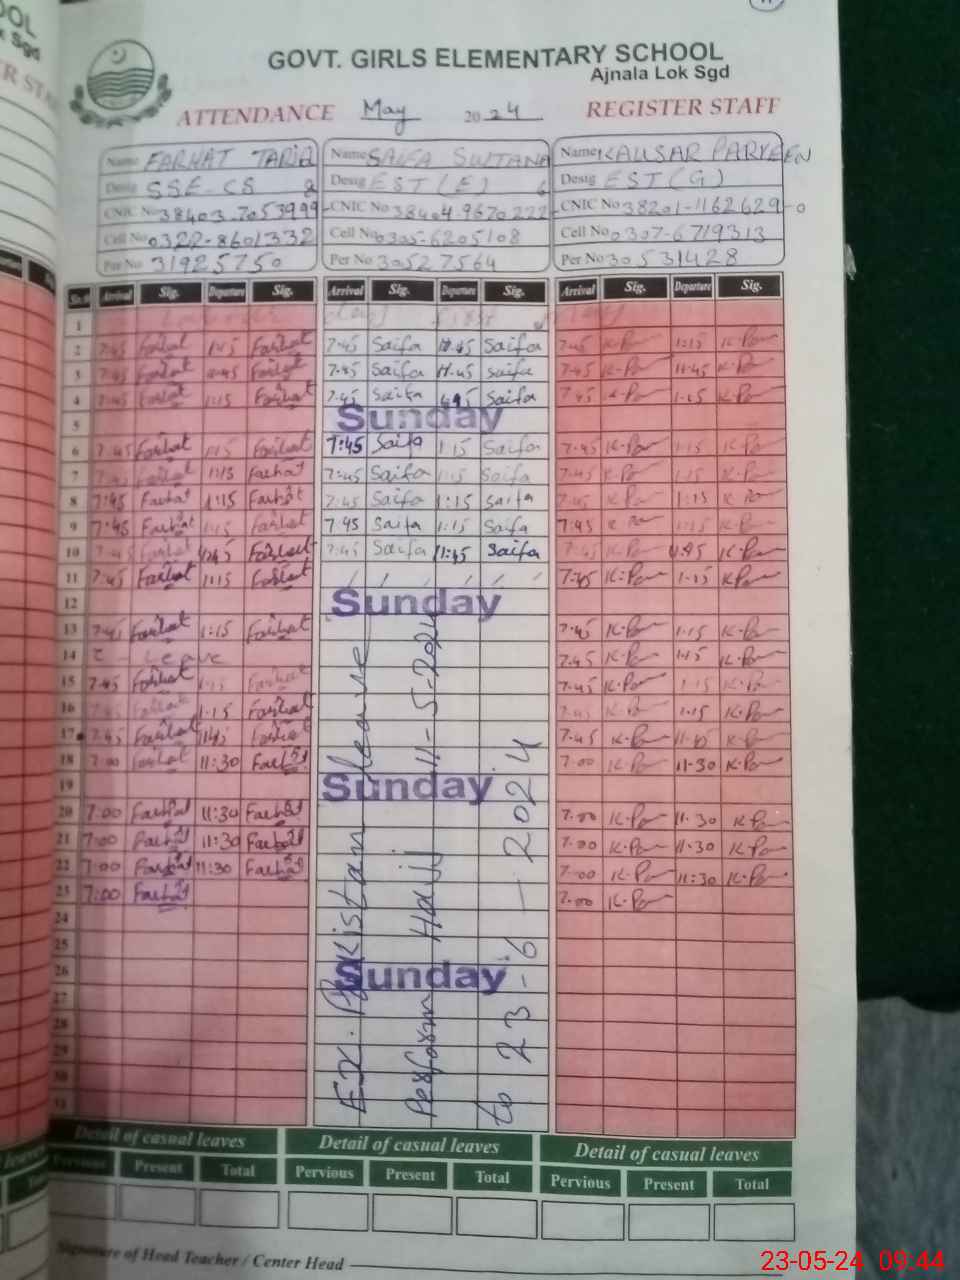 GOVT. GIRLS ELEMENTARY SCHOOL
Ajnala Lok Sgd
ATTENDANCE May 2024 REGISTER STAFF
Name FARHAT TARIQ Name SAIFA SULTANA Name KAUSAR PARVEEN
Desig SSE-CS Desig EST (E) Desig EST (G)
CNIC No 38403-7053999- CNIC No 38404-9670222- CNIC No 38201-1162629-0
Cell No 0322-8601332 Cell No 0305-6205108 Cell No 0307-6719313
Per No 31925750 Per No 30527564 Per No 30531428
Arrival Sig. Departure Sig. Arrival Sig. Departure Sig. Arrival Sig. Departure Sig.
1
2 7:45 Farhat 1:15 Farhat 7:45 Saifa Saifa 7:45 K-Par 1:15 K-Par
3 7:45 Farhat 11:45 Farhat 7:45 Saifa 11:45 Saifa 7:45 K-Par 11:45 K-Par
4 7:45 Farhat 1:15 Farhat 7:45 Saifa Saifa 7:45 K-Par 1:15 K-Par
5 Sunday
6 7:45 Farhat 1:15 Farhat 7:45 Saifa 1:15 Saifa 7:45 K-Par 1:15 K-Par
7 7:45 Farhat 1:15 Farhat 7:45 Saifa 1:15 Saifa 7:45 K-Par 1:15 K-Par
8 7:45 Farhat 1:15 Farhat 7:45 Saifa 1:15 Saifa 7:45 K-Par 1:15 K-Par
9 7:45 Farhat 1:15 Farhat 7:45 Saifa 1:15 Saifa 7:45 K-Par 1:15 K-Par
10 7:45 Farhat 11:45 Farhat 7:45 Saifa 11:45 Saifa 7:45 K-Par 11:45 K-Par
11 7:45 Farhat 1:15 Farhat 7:45 K-Par 1:15 K-Par
12 Sunday
13 7:45 Farhat 1:15 Farhat 7:45 K-Par 1:15 K-Par
14 C - Leave 7:45 K-Par 1:15 K-Par
15 7:45 Farhat 1:15 Farhat 7:45 K-Par 1:15 K-Par
16 7:45 Farhat 1:15 Farhat 7:45 K-Par 1:15 K-Par
17 7:45 Farhat 11:45 Farhat 7:45 K-Par 11:45 K-Par
18 7:00 Farhat 11:30 Farhat 7:00 K-Par 11:30 K-Par
19 Sunday
20 7:00 Farhat 11:30 Farhat 7:00 K-Par 11:30 K-Par
21 7:00 Farhat 11:30 Farhat 7:00 K-Par 11:30 K-Par
22 7:00 Farhat 11:30 Farhat 7:00 K-Par 11:30 K-Par
23 7:00 Farhat 7:00 K-Par
24
25
26 Sunday
27
28
29
30
31
EX. Pakistan leave
Perform Hajj 11-5-2024
to 23-6-2024
Detail of casual leaves Detail of casual leaves Detail of casual leaves
Pervious Present Total Pervious Present Total Pervious Present Total
Signature of Head Teacher / Center Head
23-05-24 09:44